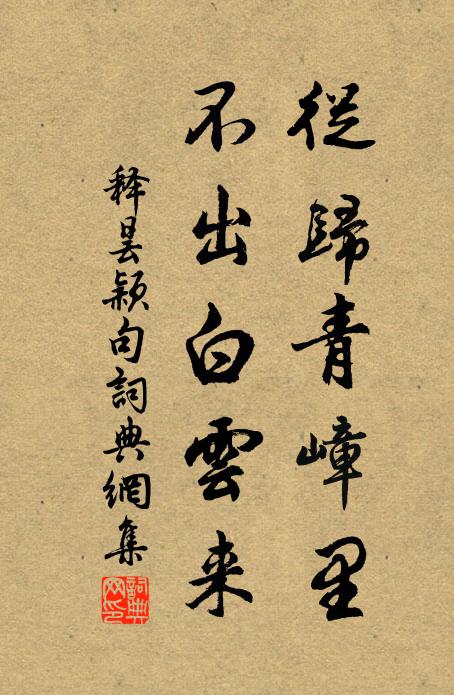 從歸青嶂里
不出白雲来
释曇颖句詞典網集
詞典网印